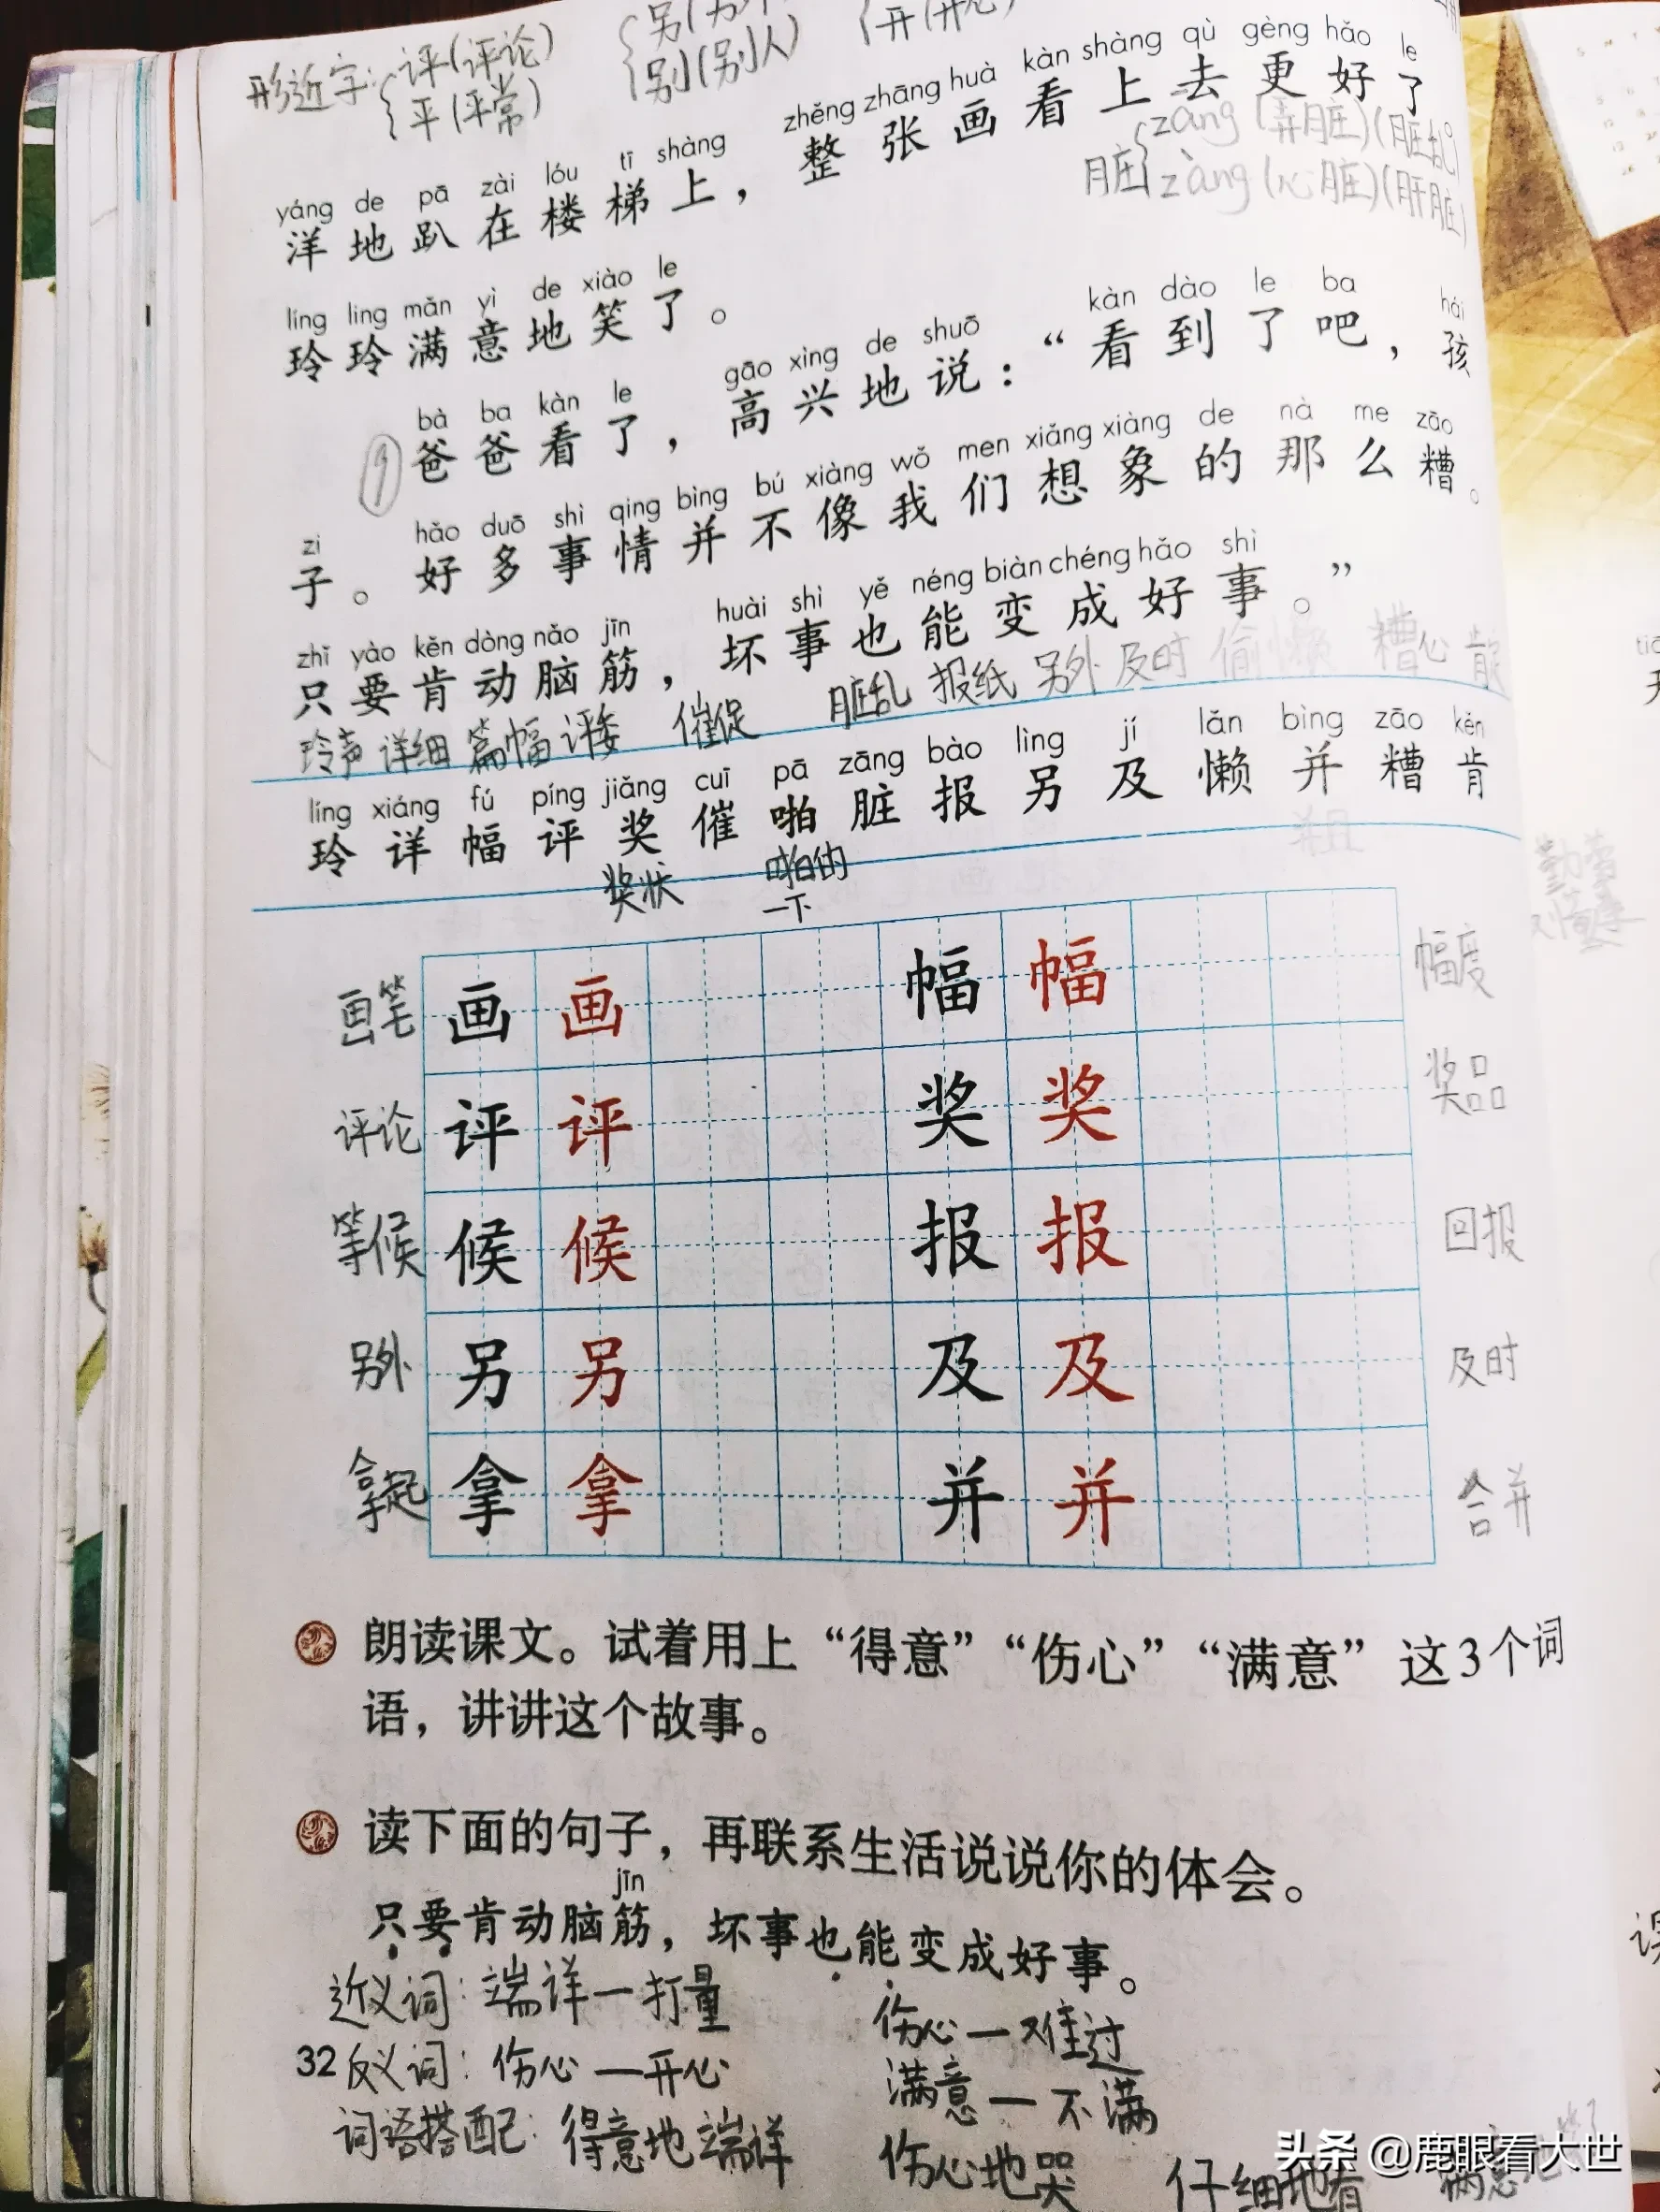 形近字：评(评论)
平(平常)
别(别人)
kàn shàng qù gèng hǎo le
zhěng zhāng huà
整张画看上去更好了
yáng de pā zài lóu tī shàng
洋地趴在楼梯上，
脏 zāng (弄脏)(脏乱)
zàng (心脏)(肝脏)
líng ling mǎn yì de xiào le
玲玲满意地笑了。
bà ba kàn le gāo xìng de shuō kàn dào le ba hái
⑨ 爸爸看了，高兴地说：“看到了吧，孩
zi hǎo duō shì qing bìng bú xiàng wǒ men xiǎng xiàng de nà me zāo
子。好多事情并不像我们想象的那么糟。
zhǐ yào kěn dòng nǎo jīn huài shì yě néng biàn chéng hǎo shì
只要肯动脑筋，坏事也能变成好事。”
玲声 详细 篇幅 评委 催促 脏乱 报纸 另外 及时 偷懒 糟心
líng xiáng fú píng jiǎng cuī pā zāng bào lìng jí lǎn bìng zāo kěn
玲 详 幅 评 奖 催 啪 脏 报 另 及 懒 并 糟 肯
奖状 啪的
一下
并且
画笔 画 画 幅 幅 幅度
评论 评 评 奖 奖 奖品
等候 候 候 报 报 回报
另外 另 另 及 及 及时
拿起 拿 拿 并 并 合并
朗读课文。试着用上“得意”“伤心”“满意”这3个词
语，讲讲这个故事。
读下面的句子，再联系生活说说你的体会。
jīn
只要肯动脑筋，坏事也能变成好事。
近义词：端详一打量 伤心一难过
32 反义词：伤心一开心 满意一不满
词语搭配：得意地端详 伤心地哭 仔细地看
头条 @鹿眼看大世